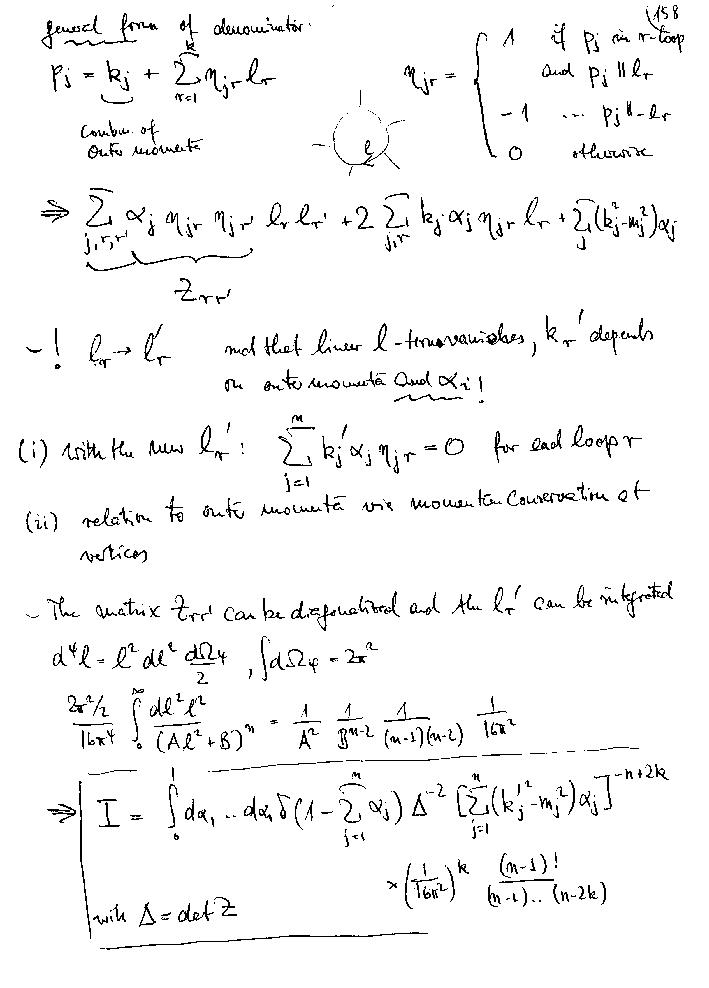 158
general form of denominator:
p_j = k_j + Σ_{r=1}^{k} η_{jr} l_r
η_{jr} = { 1 if p_j in r-loop
and p_j ∥ l_r
-1 ... p_j ∥ -l_r
0 otherwise
Combin. of
outer momenta
l
⇒ Σ_{j,r,r'} α_j η_{jr} η_{jr'} l_r l_{r'} + 2 Σ_{j,r} k_j α_j η_{jr} l_r + Σ_j (k_j^2 - m_j^2) α_j
Z_{rr'}
- ! l_r → l_r' such that linear l-terms vanishes, k_r' depends
on outer momenta and α_i !
(i) with the new l_r' : Σ_{j=1}^{n} k_j' α_j η_{jr} = 0 for each loop r
(ii) relation to outer momenta via momentum conservation at
vertices
- The matrix Z_{rr'} can be diagonalized and the l_r' can be integrated
d^4 l = l^2 dl^2 dΩ_4/2 , ∫dΩ_4 = 2π^2
(2π^2/2)/(16π^4) ∫_0^∞ (dl^2 l^2)/(A l^2 + B)^n = 1/A^2 1/B^{n-2} 1/((n-1)(n-2)) 1/(16π^2)
⇒ I = ∫_0^1 dα_1 .. dα_n δ(1 - Σ_{j=1}^{n} α_j) Δ^{-2} [Σ_{j=1}^{n} (k_j'^2 - m_j^2) α_j]^{-n+2k}
× (1/(16π^2))^k (n-1)!/((n-1)..(n-2k))
with Δ = det Z